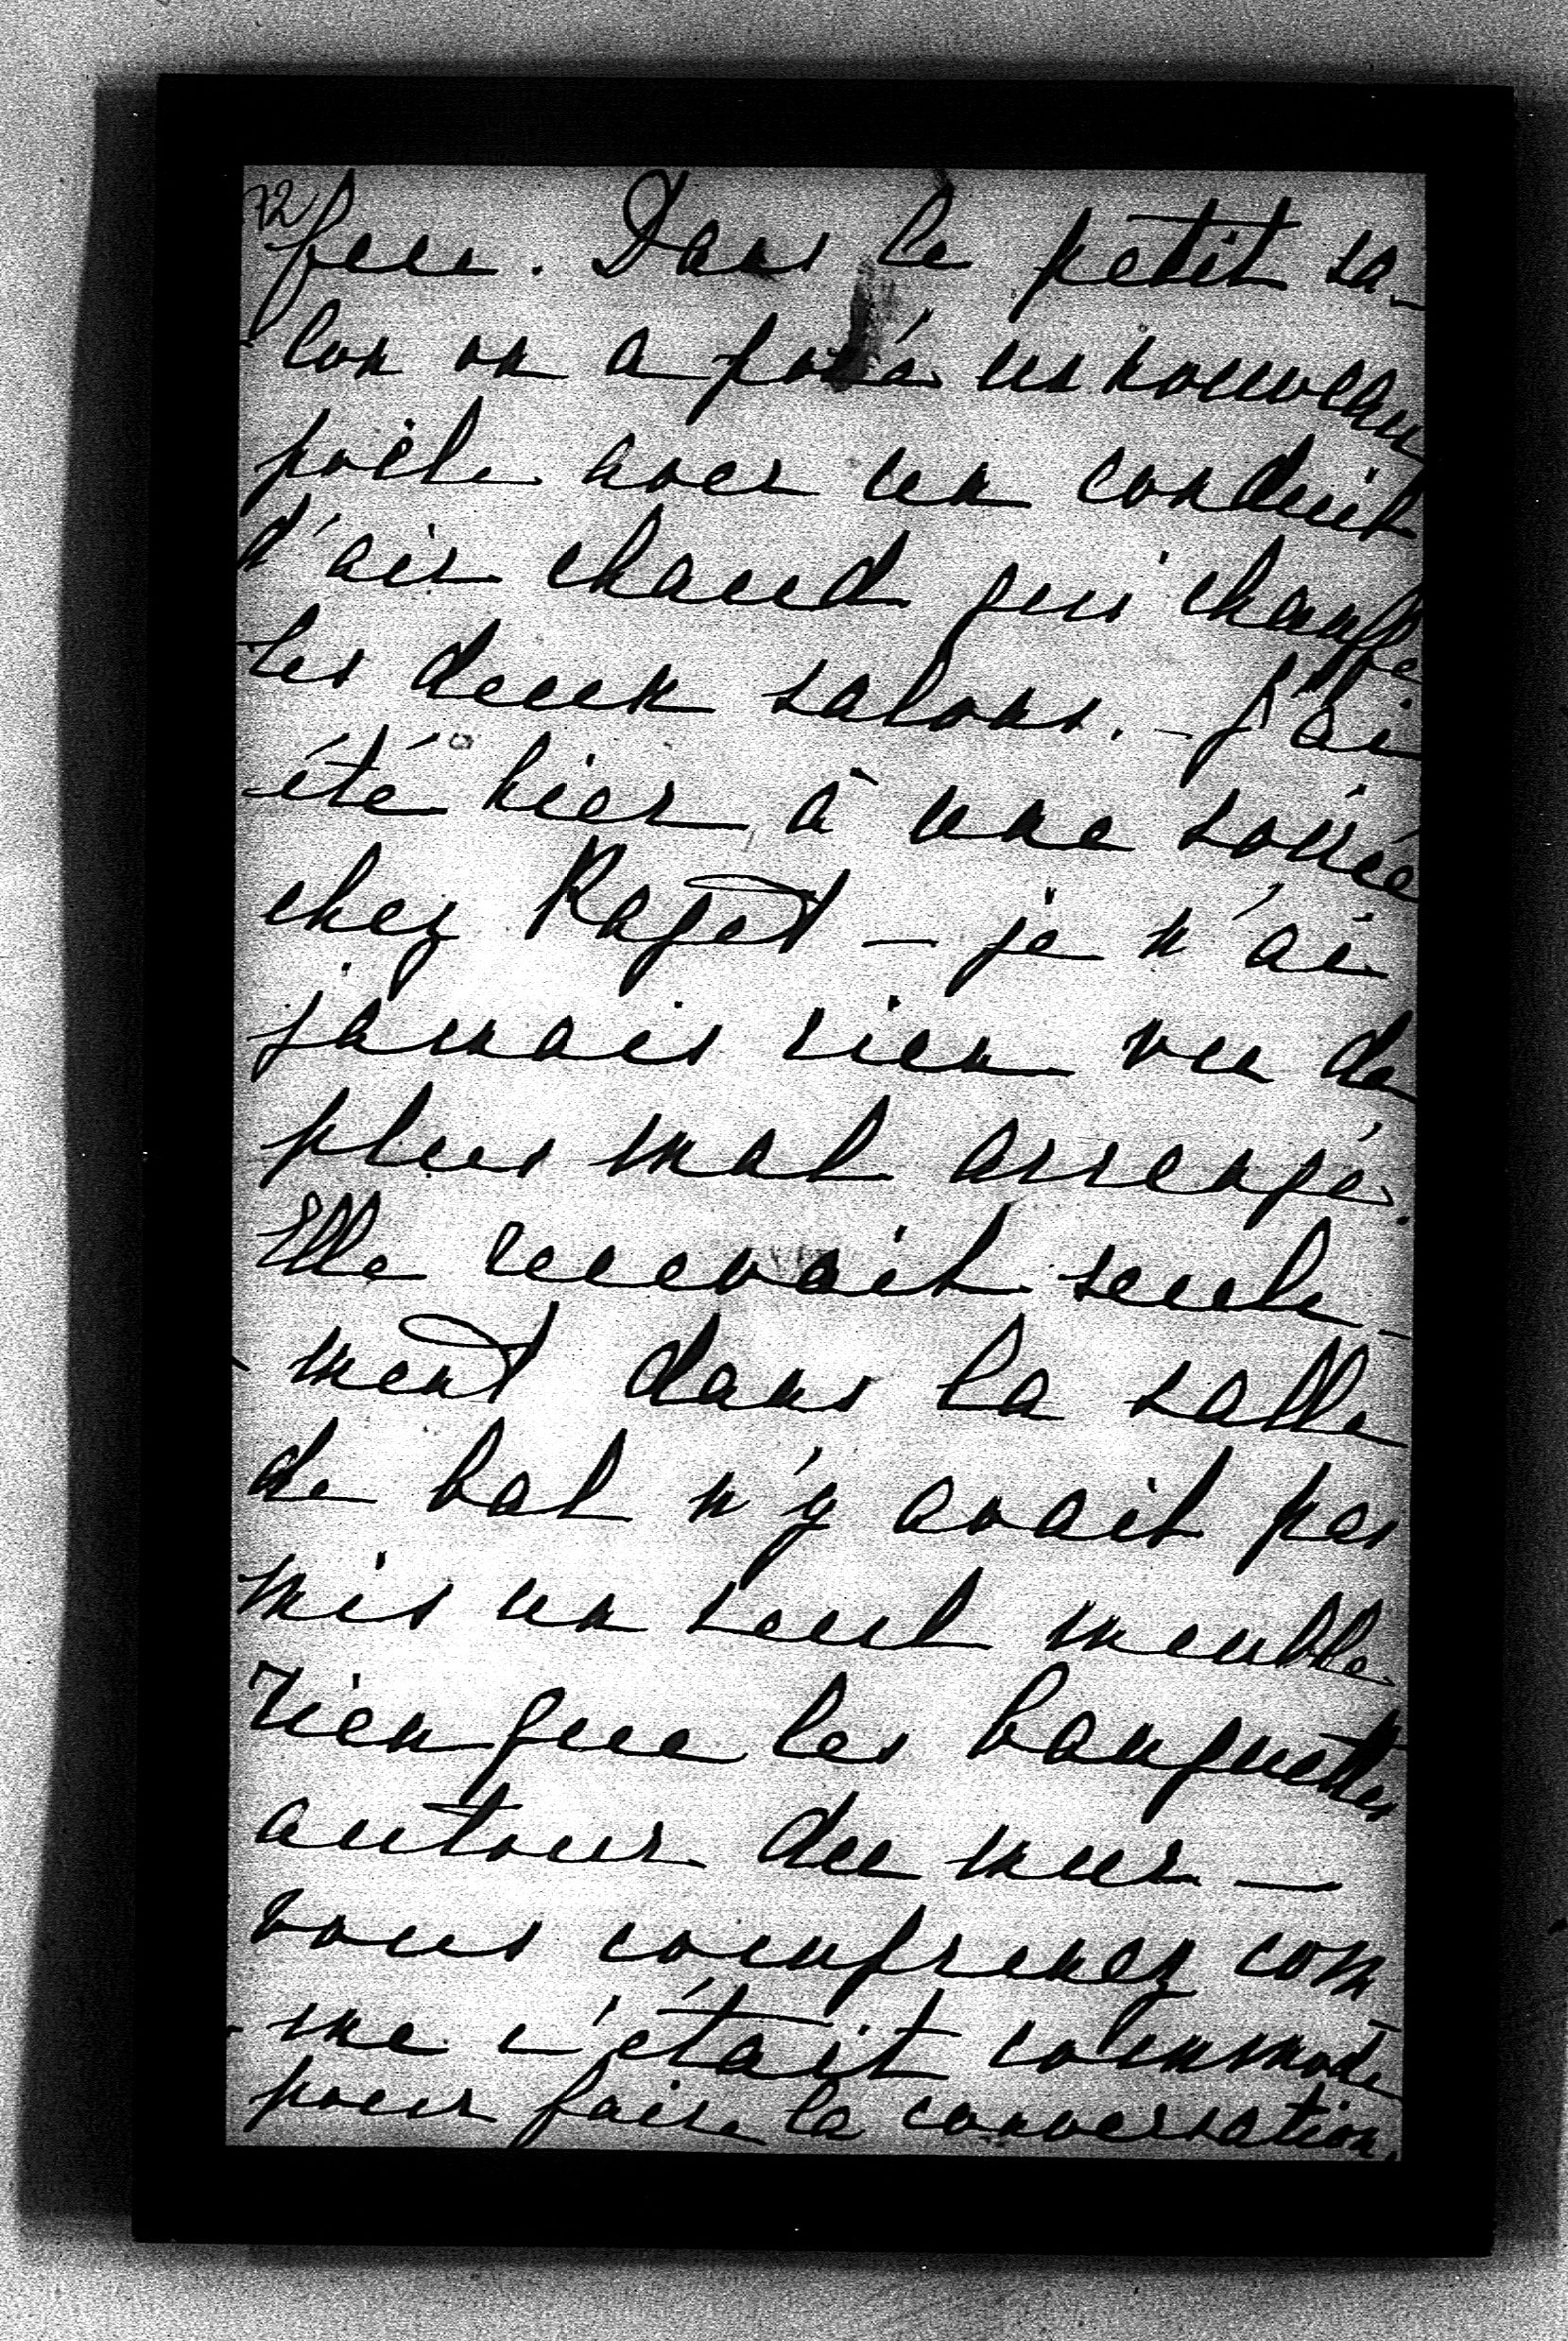 72
feu. Dans le petit sa-
lon on a posé un nouveau
poële avec un conduit
d'air chaud qui chauffe
les deux salons. - J'ai
été hier à une soirée
chez Raget - je n'ai
jamais rien vu de
plus mal arrangé.
Elle recevait seule-
ment dans la salle
de bal n'y avait pas
mis un seul meuble
rien que les banquettes
autour du mur -
vous comprenez com
-me c'était commode
pour faire la conversation.